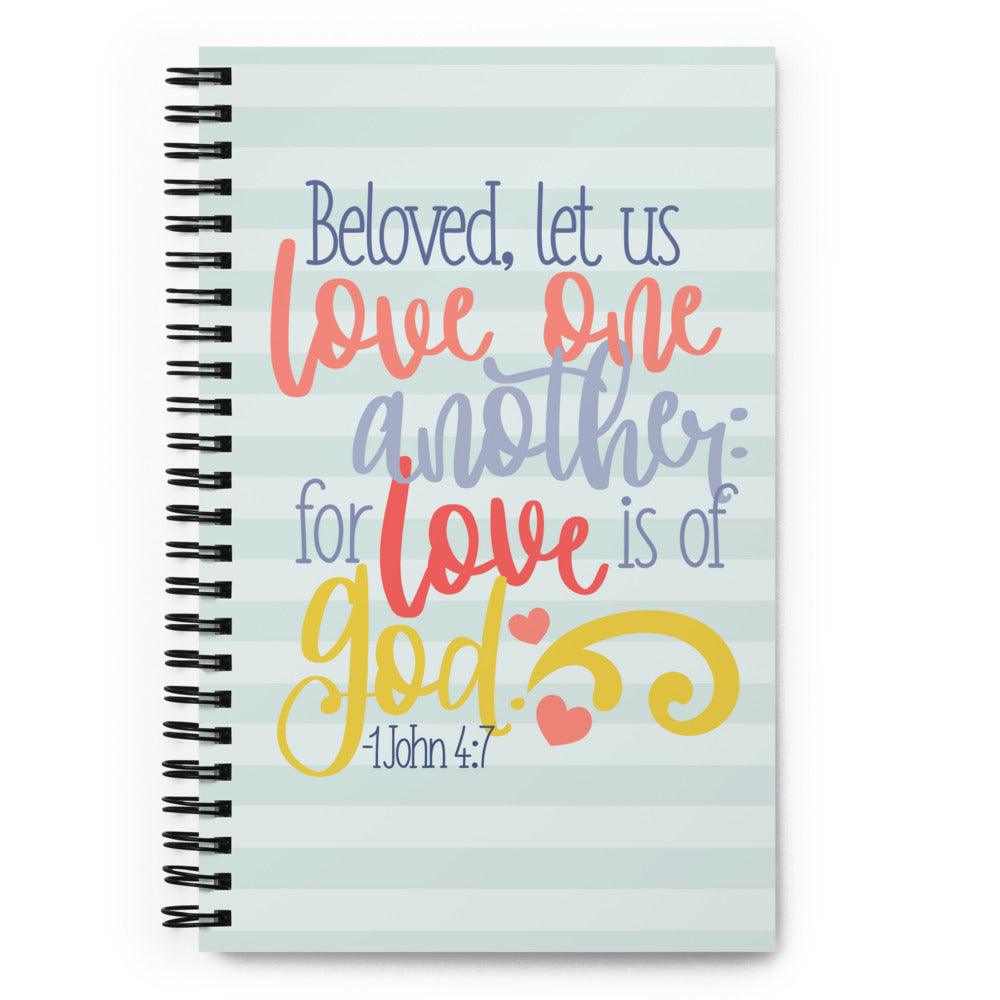 Beloved, let us
love one
another:
for love is of
god.
-1 John 4:7